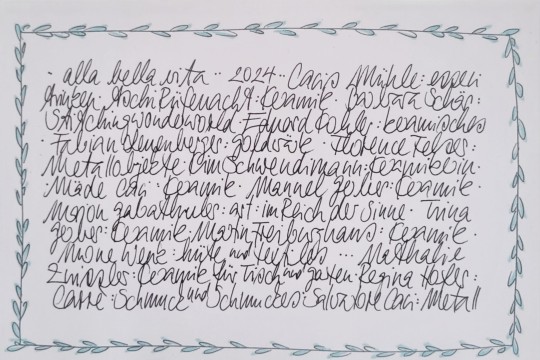 · alla bella vita ·· 2024 ·· Caris Mühle: essen
trinken · Aschi Rüfenacht: Keramik · Barbara Schär:
Stitchingwonderworld Eduard Kohler: keramisches
Fabian Blumenberger: goldsäge · Florence Felser:
Metallobjekte Ümschwendimann: Keramikbin ·
Made Cari: Keramik · Manuel gerber: Keramik ·
Marion gabathuler: art: im Reich der Sinne · Trina
gerber: Keramik · Martin Freiburghaus: Keramik ·
wene hüte und ··· Nathalie
Keramik für Tisch und garten Regina
Carré: Schmuck und Schmuckes · Salvatore Cari: Metall